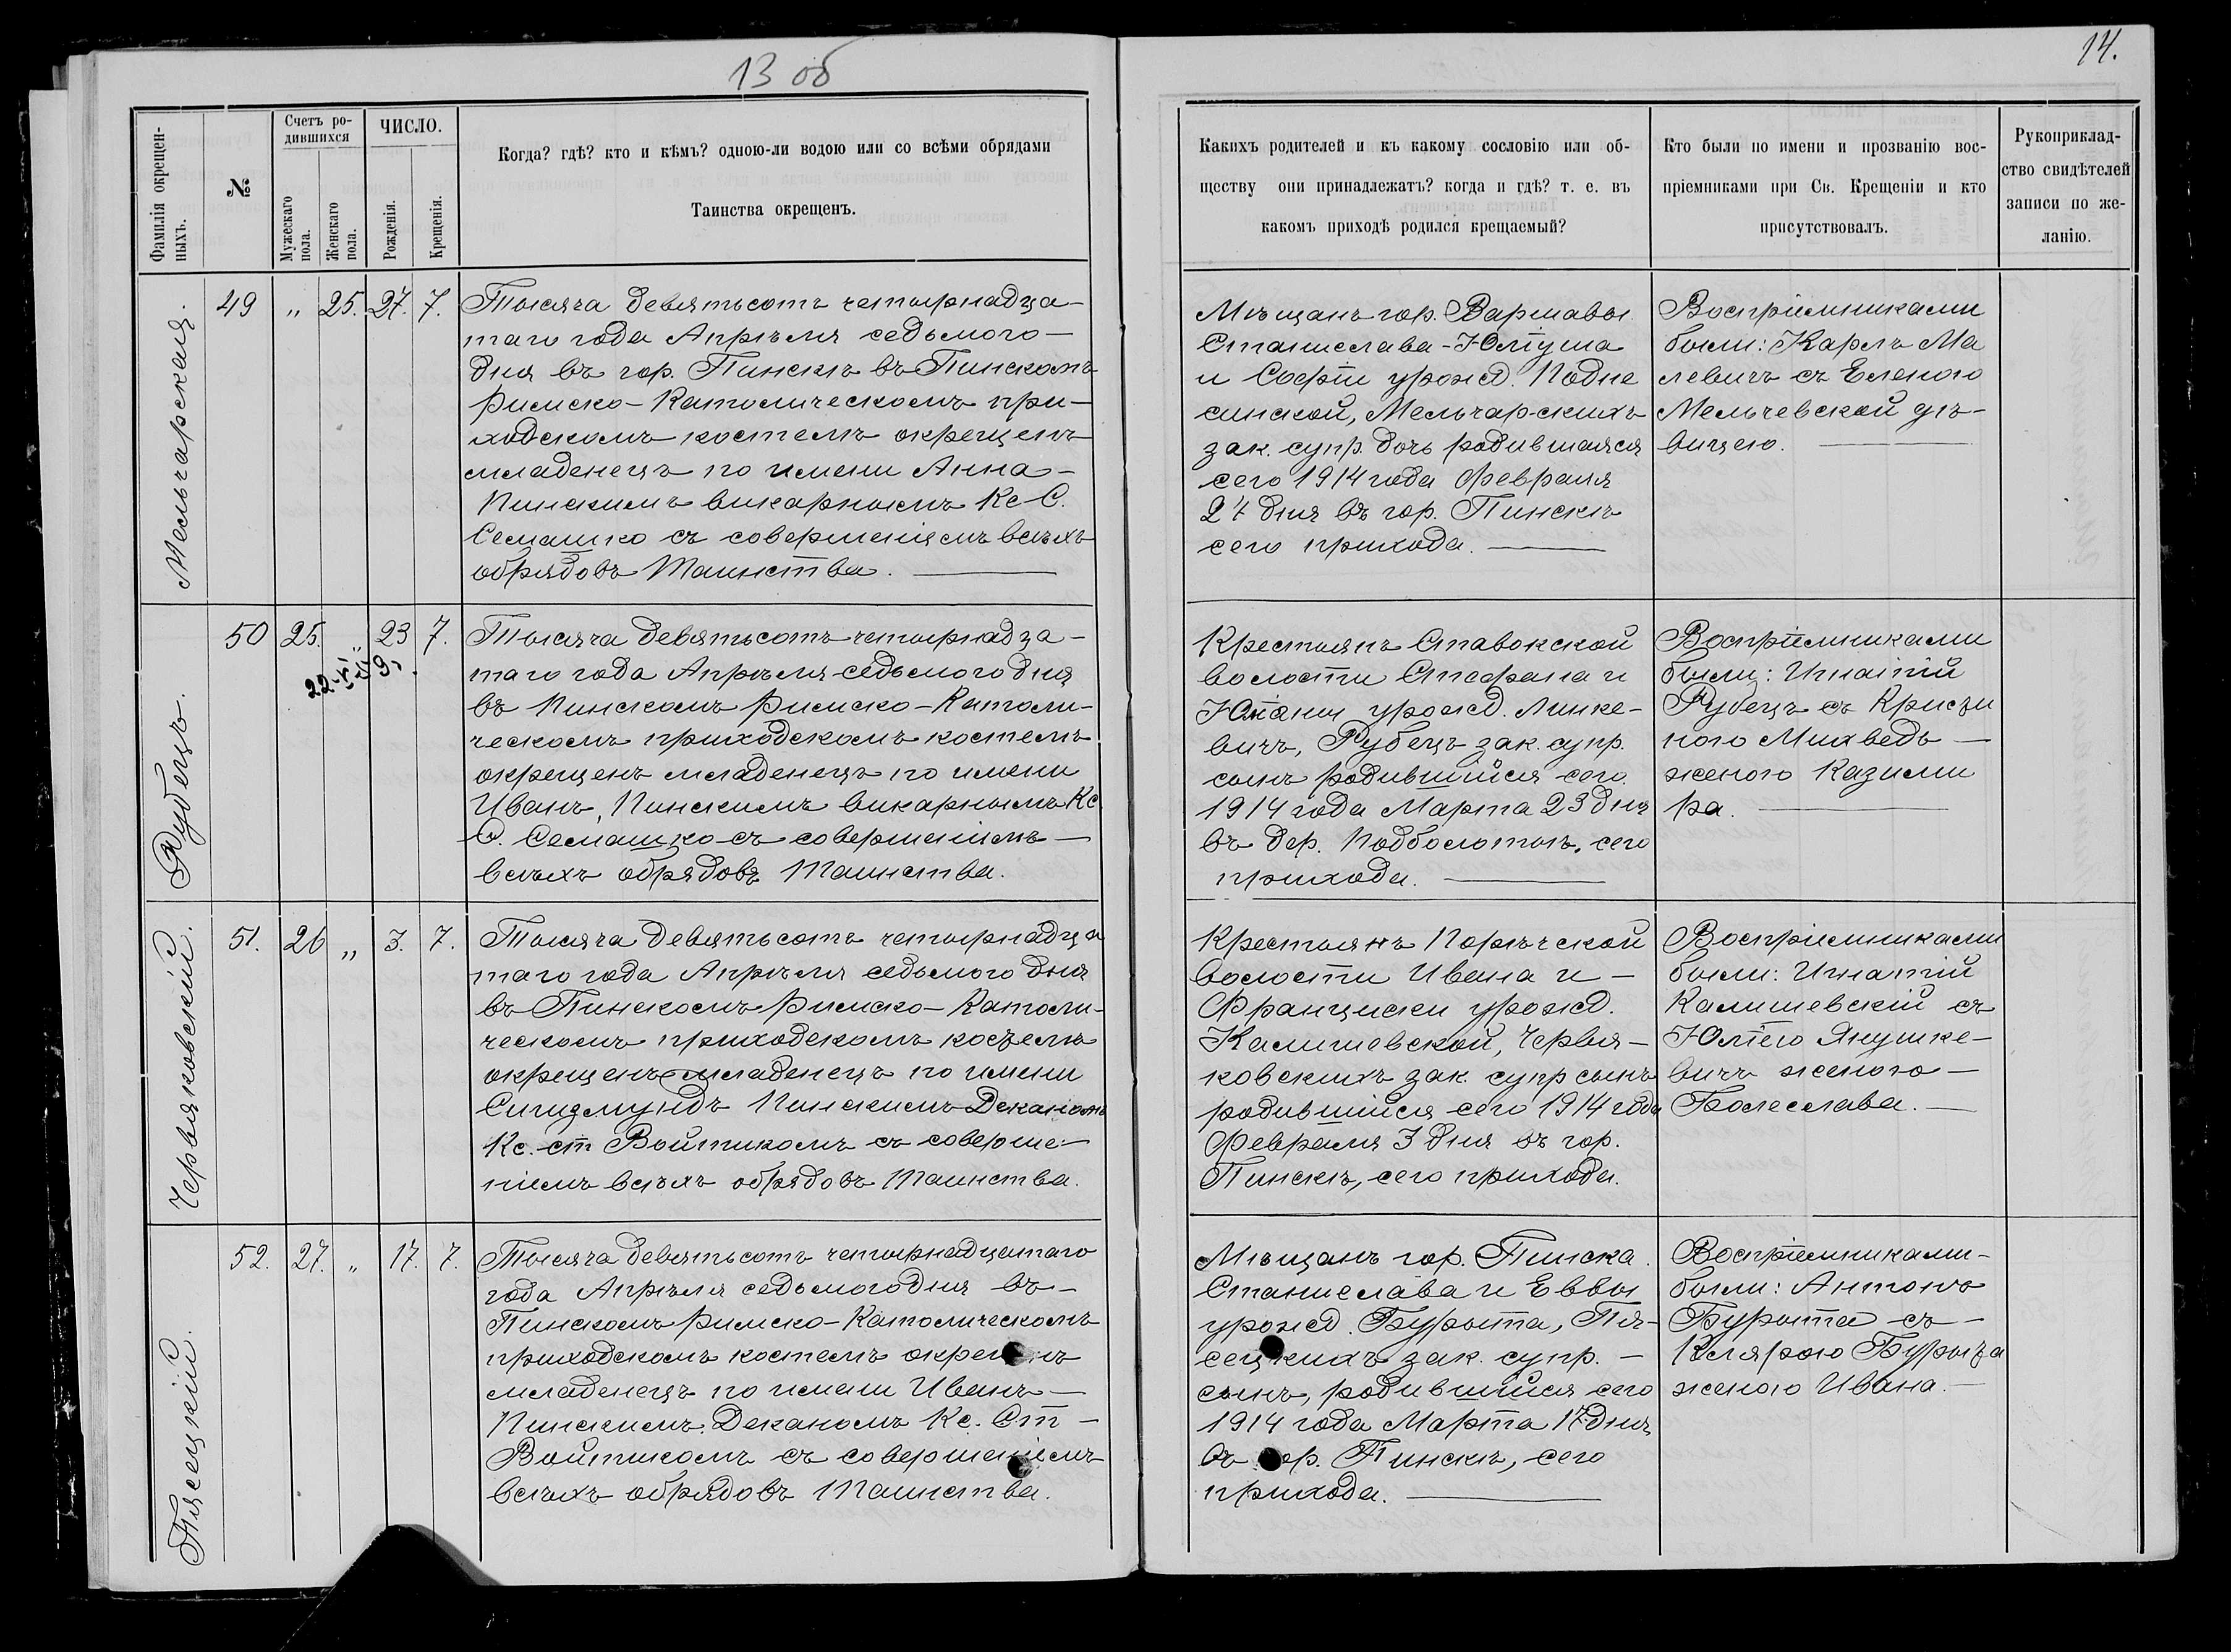 13 об
14.
Фамилія окрещен-
ныхъ.
№
Счетъ ро-
дившихся
Мужескаго
пола.
Женскаго
пола.
ЧИСЛО.
Рожденія.
Крещенія.
Когда? гдѣ? кто и кѣмъ? одною-ли водою или со всѣми обрядами
Таинства окрещенъ.
Какихъ родителей и къ какому сословію или об-
ществу они принадлежатъ? когда и гдѣ? т. е. въ
какомъ приходѣ родился крещаемый?
Кто были по имени и прозванію вос-
пріемниками при Св. Крещеніи и кто
присутствовалъ.
Рукоприклад-
ство свидѣтелей
записи по же-
ланію.
Мельчарская.
49 " 25. 27. 7.
Тысяча девятьсотъ четырнадца-
таго года Апрѣля седьмого
дня въ гор. Пинскѣ въ Пинскомъ
Римско-Католическомъ при-
ходскомъ костелѣ окрещенъ
младенецъ по имени Анна
Пинскимъ викарнымъ Кс С.
Семашко съ совершеніемъ всѣхъ
обрядовъ Таинства.
Мѣщанъ гор. Варшавы
Станислава-Юліуша
и Софіи урожд. Подле
синской, Мельчарскихъ
зак. супр. дочь родившаяся
сего 1914 года Февраля
27 дня въ гор. Пинскѣ
сего прихода.
Воспріемниками
были: Карлъ Ма
левичъ съ Еленою
Мельчевской дѣ-
вицею.
Рубецъ.
50 25. " 23 7.
Тысяча девятьсотъ четырнадца-
таго года Апрѣля седьмого дня
въ Пинскомъ Римско-Католи-
ческомъ приходскомъ костелѣ
окрещенъ младенецъ по имени
Иванъ, Пинскимъ викарнымъ Кс.
С. Семашко съ совершеніемъ
всѣхъ обрядовъ Таинства.
Крестьянъ Ставокской
волости Стефана и
Юліаны урожд. Линке-
вичъ, Рубецъ зак. супр.
сынъ родившійся сего
1914 года Марта 23 дня
въ дер. Подболотьѣ, сего
прихода.
Воспріемниками
были: Игнатій
Рубецъ съ Кристи
ною Михведъ
женою Казими
ра.
Червяковскій.
51. 26 " 3. 7.
Тысяча девятьсотъ четырнадца
таго года Апрѣля седьмого дня
въ Пинскомъ Римско-Католи-
ческомъ приходскомъ костелѣ
окрещенъ младенецъ по имени
Сигизмундъ Пинскимъ Деканомъ
Кс. Ст Войтикомъ съ соверше-
ніемъ всѣхъ обрядовъ Таинства.
Крестьянъ Порѣчской
волости Ивана и
Францишки урожд.
Калишевской, Червя-
ковскихъ зак. супр сынъ
родившійся сего 1914 года
Февраля 3 дня въ гор.
Пинскѣ, сего прихода.
Воспріемниками
были: Игнатій
Калишевскій съ
Юліею Янушке-
вичъ женою
Болеслава.
Пясецкій.
52. 27. " 17. 7.
Тысяча девятьсотъ четырнадцатаго
года Апрѣля седьмого дня въ
Пинскомъ Римско-Католическомъ
приходскомъ костелѣ окрещенъ
младенецъ по имени Иванъ
Пинскимъ Деканомъ Кс. Ст
Войтикомъ съ совершеніемъ
всѣхъ обрядовъ Таинства.
Мѣщанъ гор. Пинска
Станислава и Еввы
урожд. Бурыта, Пя-
сецкихъ зак. супр.
сынъ, родившійся сего
1914 года Марта 17 дня
въ гор. Пинскѣ, сего
прихода.
Воспріемниками
были: Антонъ
Бурыта съ
Клярою Бурыта
женою Ивана.